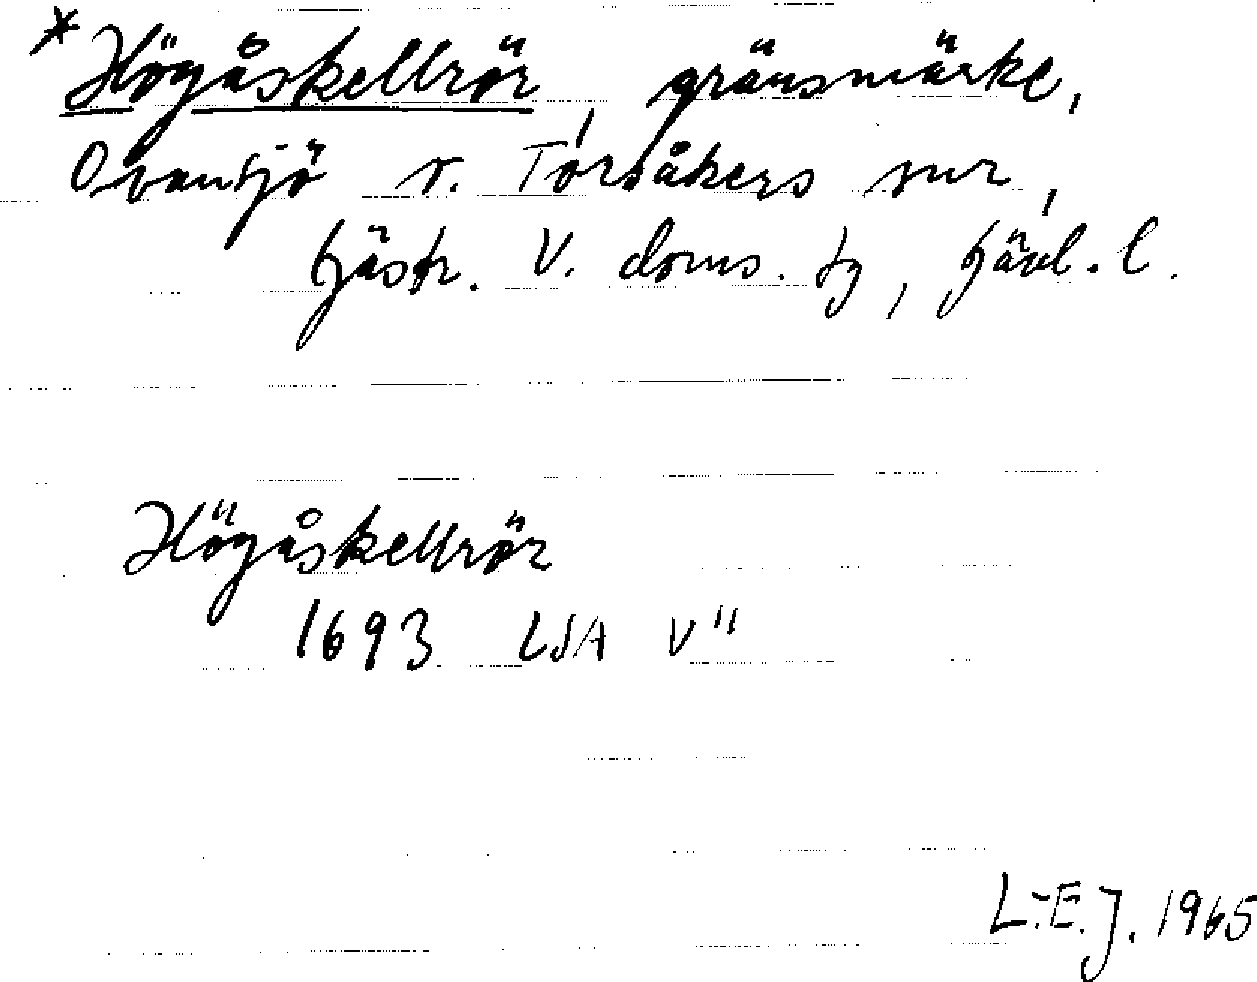 * Högåskellrör, gränsmärke,
Ovansjö o. Torsåkers snr,
Gästr. V. doms. tg, Gävl. l.
Högåskellrör
1693 LSA V"
L.-E. J. 1965